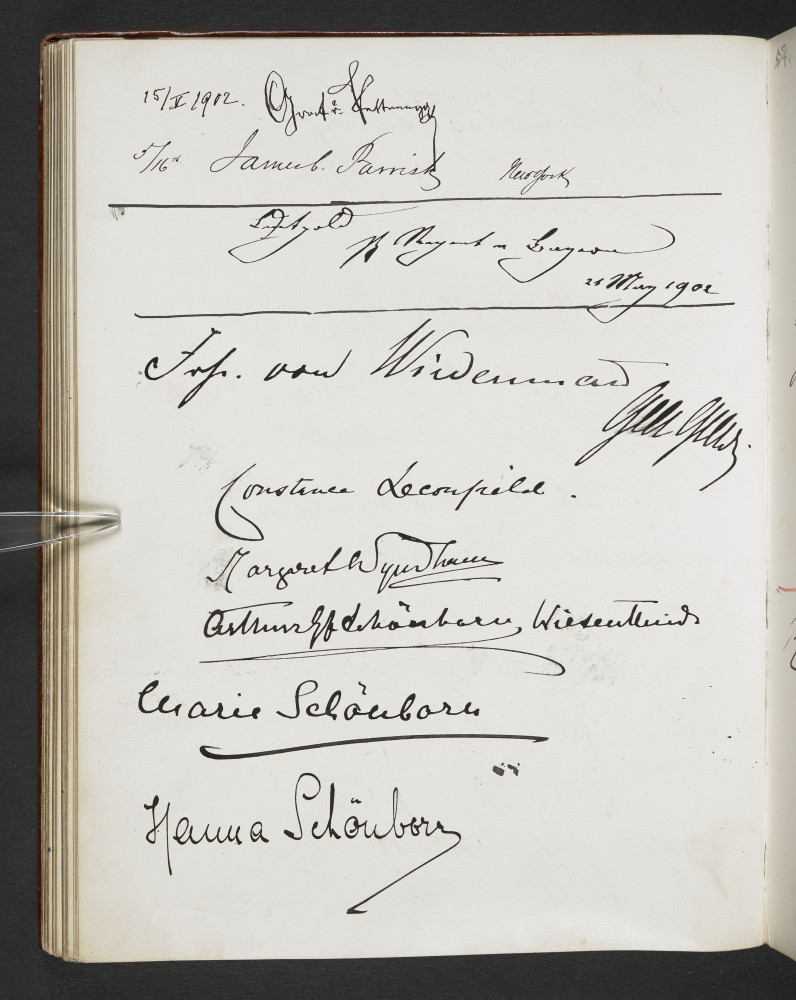 15/V 1902. Graf
5/16th James C. Parrish New York
Luitpold
Pz Regent v Bayern
21 May 1902
Frhr. von Wiedenmann
Constance Leconfield.
Margaret Wyndham
Arthur Gf Schönborn, Wiesentheid
Marie Schönborn
Hanna Schönborn